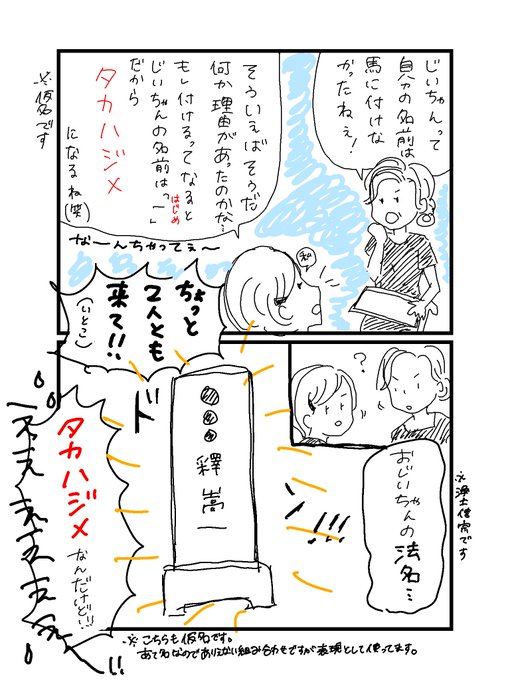 じいちゃんって
自分の名前は
馬に付けな
かったねぇ!
そういえばそうだ
何か理由があったのかな…
もし付けるってなると
じいちゃんの名前は「一」
はじめ
だから
タカハジメ
になるね(笑)
なーんちゃってぇ〜
※仮名です
私
ちょっと
2人とも
来て!!
(いとこ)
?
おじいちゃんの
法名…
※浄土信宗です
釋嵩一
ドン!!!
タカハジメ
なんだけど!!
※こちらも仮名です。
あて名なのでありえない組み合わせですが表現として使ってます。